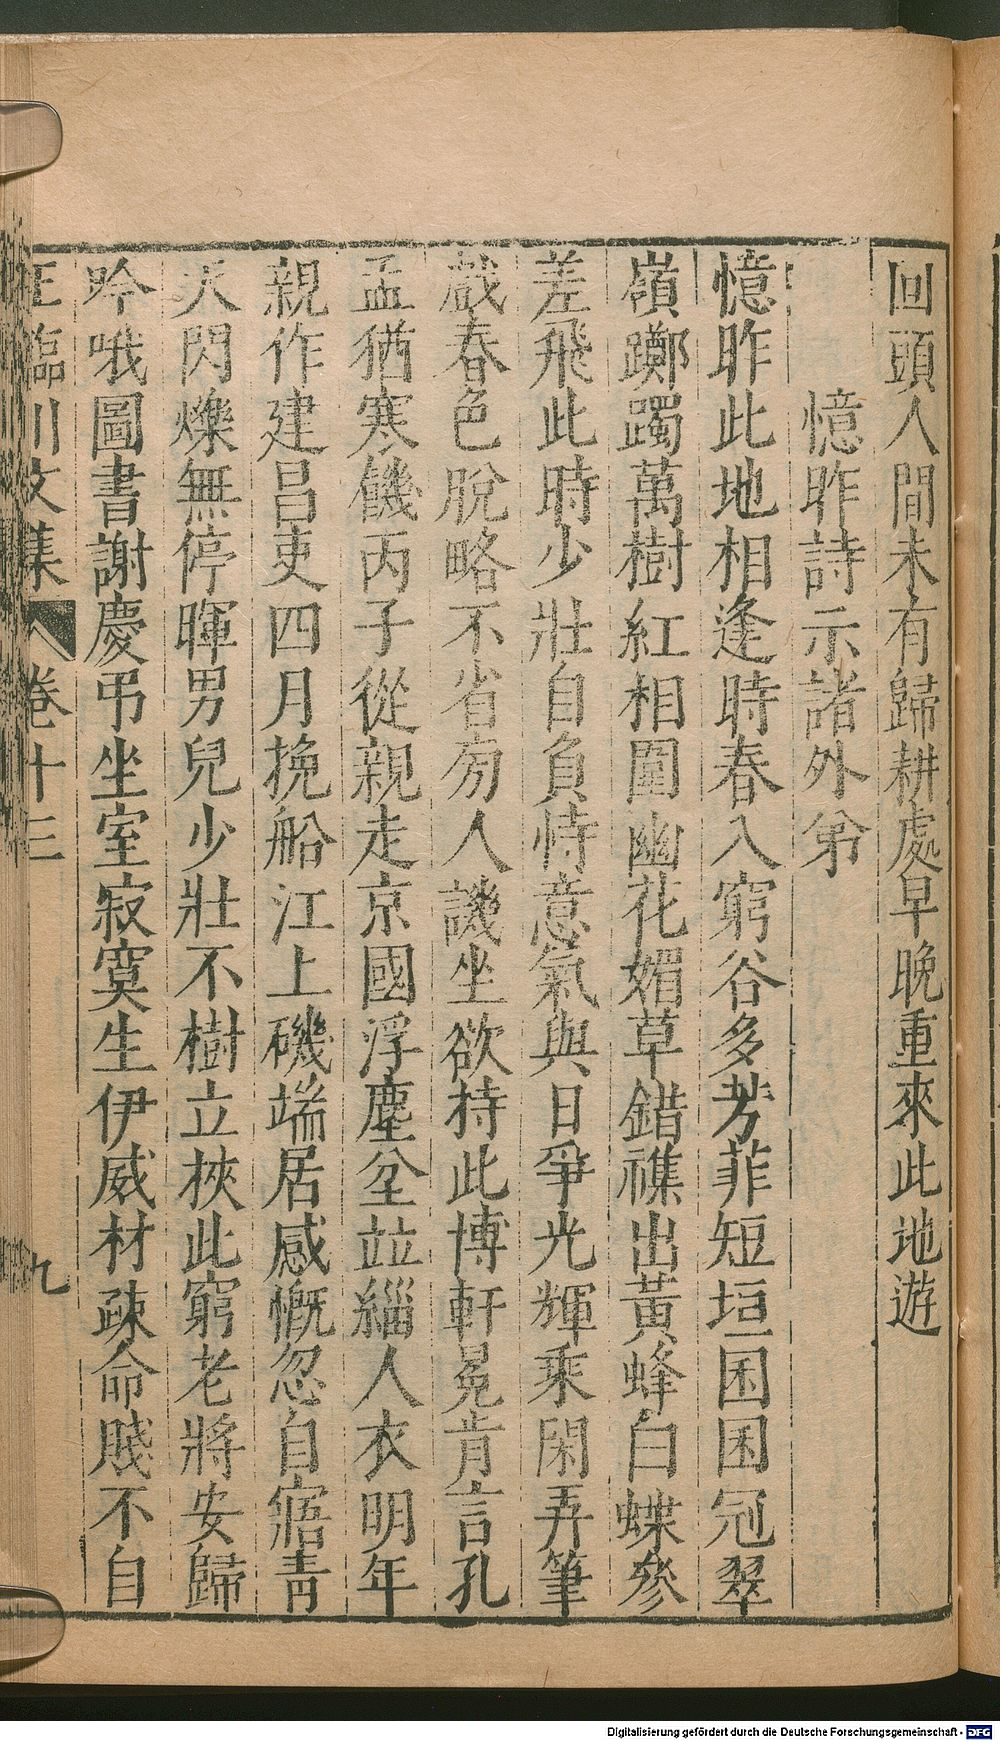 回頭人間未有歸耕處早晚重來此地遊
憶昨詩示諸外弟
憶昨此地相逢時春入窮谷多芳菲短垣囷囷冠翠
嶺躑躅萬樹紅相圍幽花媚草錯雜出黃蜂白蝶參
差飛此時少壯自負恃意氣與日爭光輝乘閑弄筆
戲春色脫略不省旁人譏坐欲持此博軒冕肯言孔
孟猶寒饑丙子從親走京國浮塵坌並緇人衣明年
親作建昌吏四月挽船江上磯端居感慨忽自寤青
天閃爍無停暉男兒少壯不樹立挾此窮老將安歸
吟哦圖書謝慶弔坐室寂寞生伊威材疎命賤不自
王臨川文集 卷十三 九
Digitalisierung gefördert durch die Deutsche Forschungsgemeinschaft - DFG